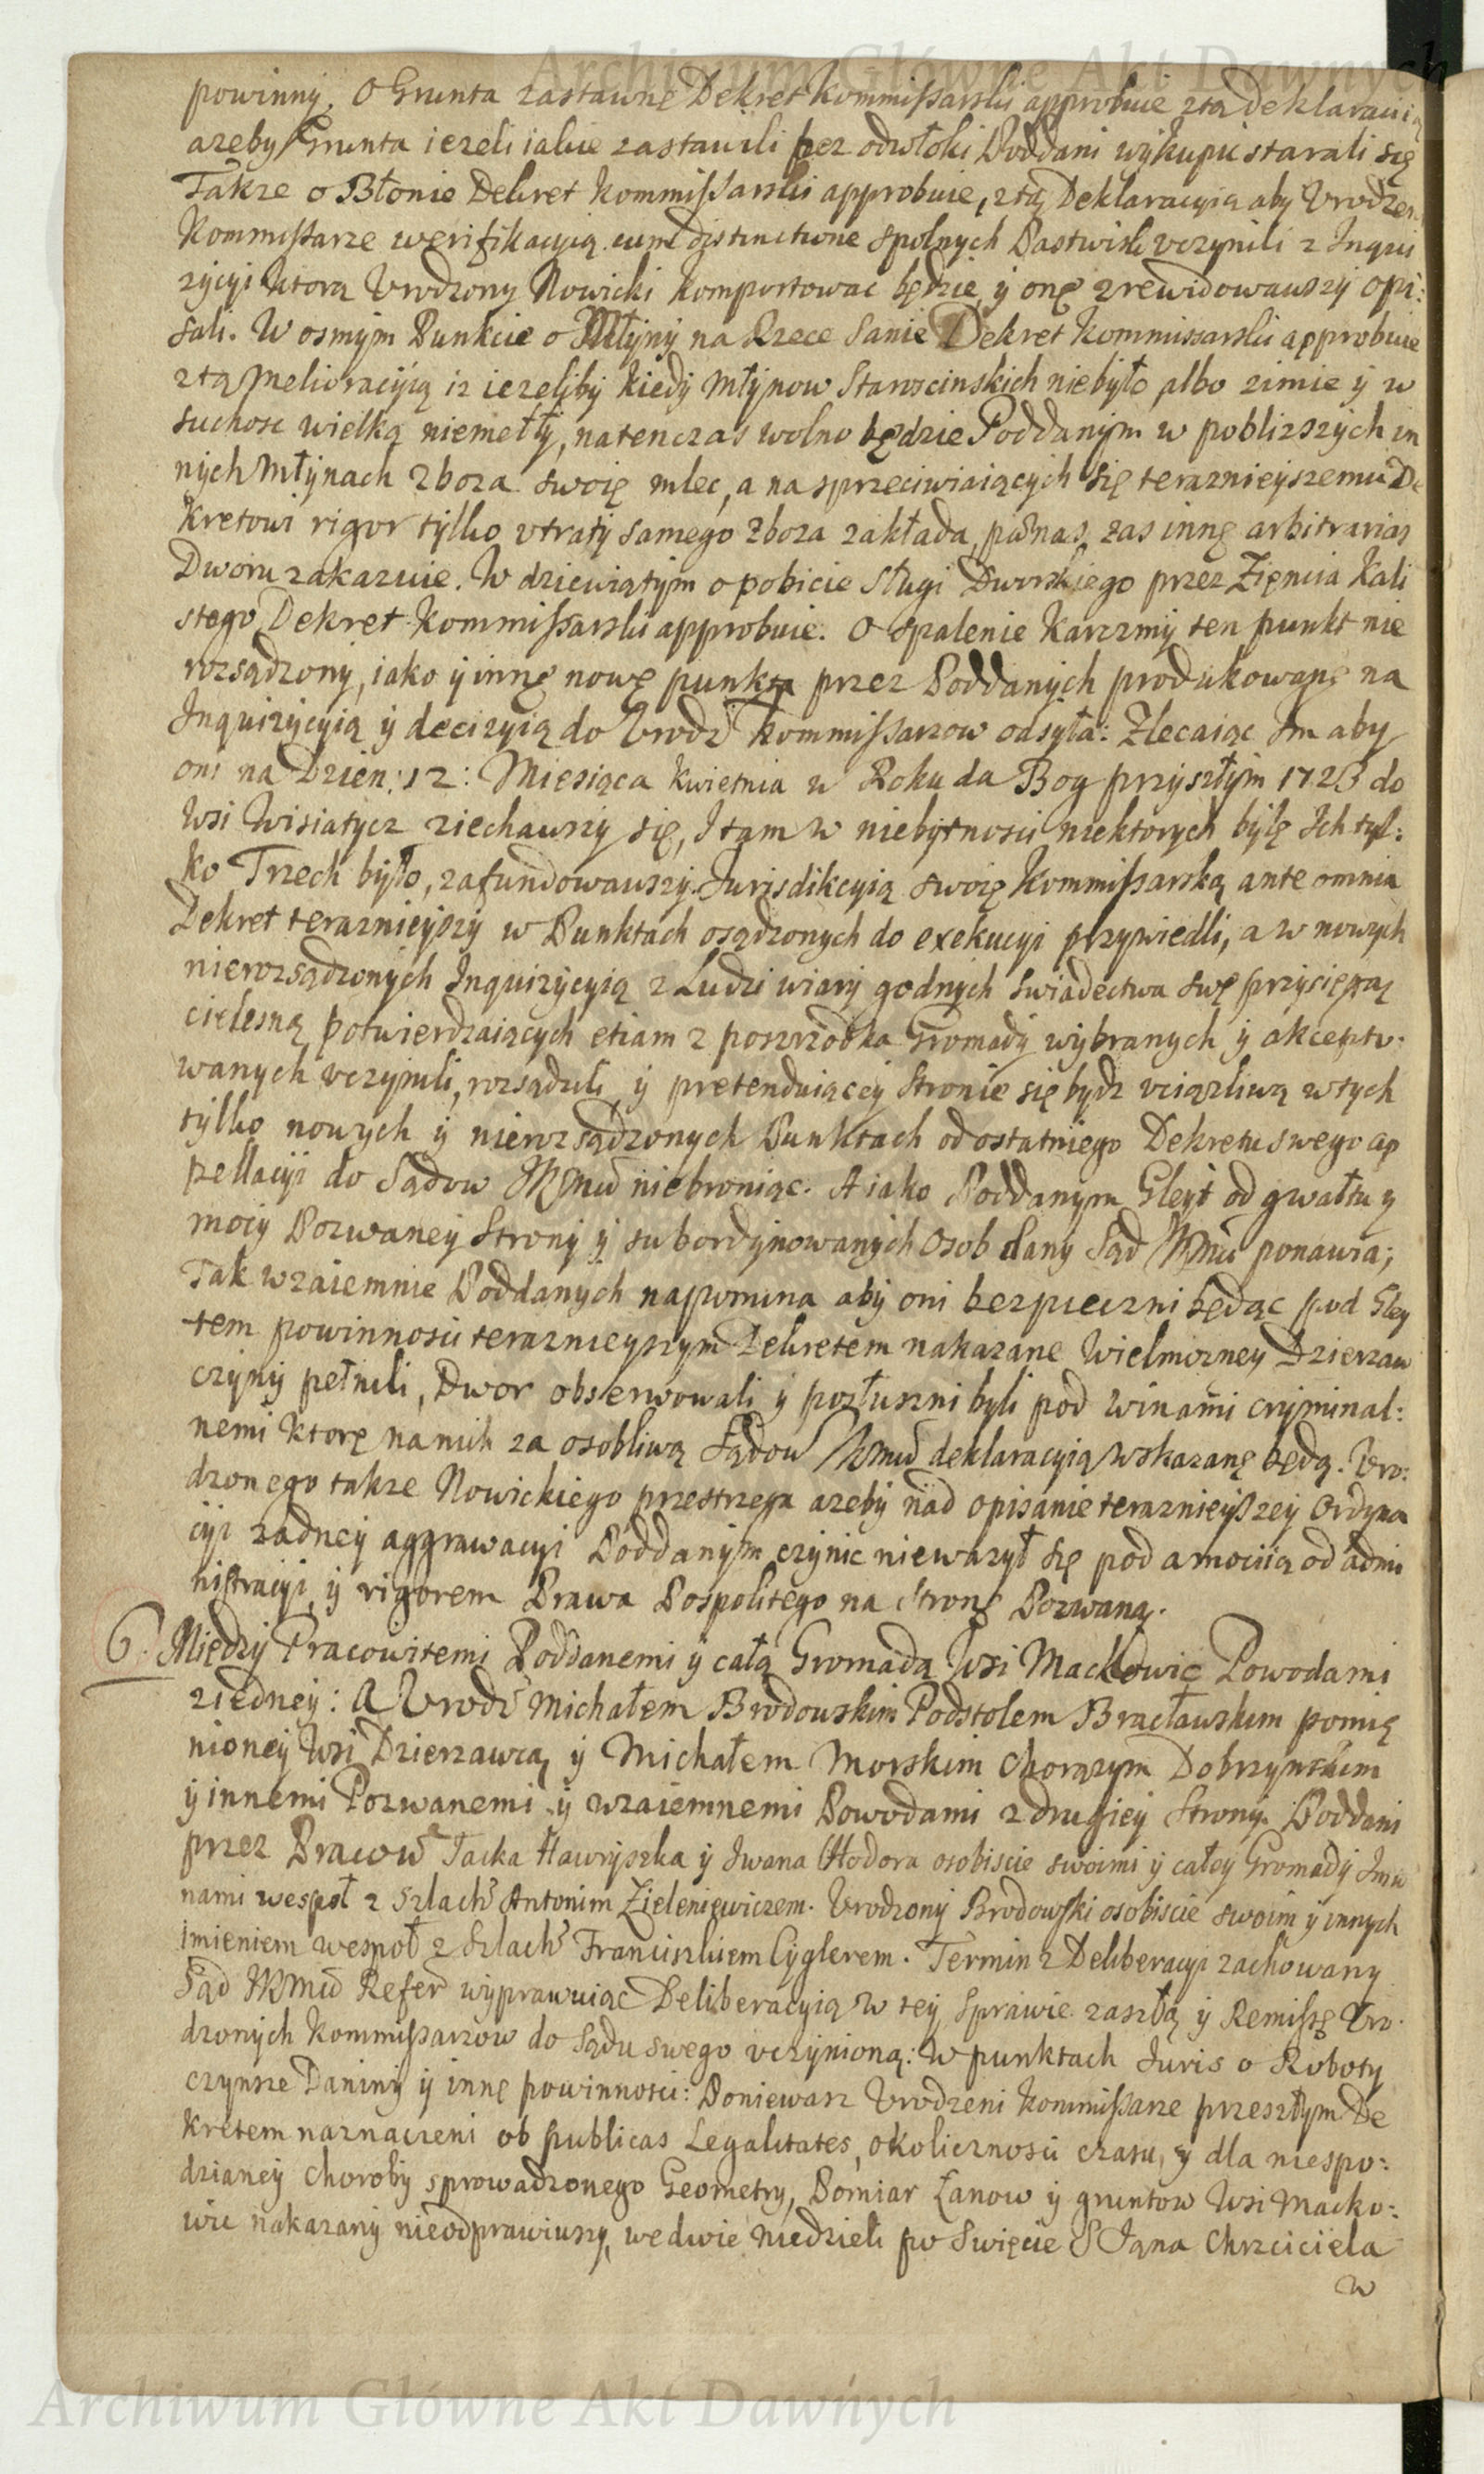 Archiwum Główne Akt Dawnych
powinny. O Grunta zastawne Dekret Kommissarski approbuie z tą deklaracią
azeby Grunta iezeli iakie zastawili bez odwłoki Poddani wykupic starali się
Takze o Błonie Dekret Kommissarski approbuie, z tą Deklaracyią aby Vrodzen:
Kommissarze werifikacyią cum distinctione spolnych Pastwisk vczynili z Inqui
zycyi ktorą Vrodzony Nowicki komportowac będzie y onę zrewidowawszy opi:
sali. W osmym Punkcie o Młyny na Rzece Sanie Dekret Kommissarski approbuie
z tą melioracyią iz iezelyby kiedy Młynow Staroscinskich niebyło albo zimie y w
suchosc wielką niemełły, natenczas wolno będzie Poddanym w poblizszych in
nych Młynach zboza swoię mlec, a na sprzeciwiaiących się terazniejszemu De
kretowi rigor tylko vtraty samego zboza zakłada, pænas zas innę arbitrarias
Dworu zakazuie. W dziewiątym o pobicie sługi Dworskiego przez Zięncia Kali
stego Dekret Kommissarski approbuie. O spalenie Karczmy ten punkt nie
rozsądzony, iako y innę nowę punkta przez Poddanych produkowanę na
Inquizycyią y decizyią do Vrodz Kommissarzow odsyła: Zlecaiąc Im aby
oni na Dzien: 12: Miesiąca Kwietnia w Roku da Bog przyszłym 1723 do
Wsi Wisiatycz ziechawszy się, I tam w niebytnosci niektorych bylę Ich tyl:
ko Trzech było, zafundowawszy Iurisdikcyią swoię Kommissarską ante omnia
Dekret terazniejszy w Punktach osądzonych do exekucyi przywiedli, a w nowych
nierozsądzonych Inquizycyią z Ludzi wiary godnych swiadectwa swę przysięgą
cielesną potwierdzaiących etiam z poszrzodka Gromady wybranych y akcepto:
wanych vczynili, rozsądzili y pretenduiącey Stronie się bydz vciązliwą w tych
tylko nowych y nierozsądzonych Punktach od ostatniego Dekretu swego ap
pellacyi do Sądow JKMci niebroniąc. A iako Poddanym Gleyt od gwałtu y
mocy Pozwaney Strony y subordynowanych Osob dany Sąd JKMci ponawia;
Tak wzaiemnie Poddanych napomina aby oni bezpieczni będąc pod Gley
tem powinnosci terazniejszym Dekretem nakazane Wielmozney Dzierzaw
czyny pełnili, Dwor obserwowali y posłuszni byli pod winami cryminal:
nemi ktorę na nich za osobliwą Sądow JKMci deklaracyią wskazanę będą. Vro:
dzonego takze Nowickiego przestrzega azeby nad opisanie terazniejszey Ordyna
cyi zadney aggrawacyi Poddanym czynic niewazył się pod amociią od admi
nistracyi y rigorem Prawa Pospolitego na Stronę Pozwaną.
6. Między Pracowitemi Poddanemi y całą Gromadą Wsi Mackowic Powodami
z iedney: A Vrodz Michałem Brodowskim Podstolem Bracławskim pomię
nioney Wsi Dzierzawcą y Michałem Morskim Chorązym Dobrzynskim
y innemi Pozwanemi y wzaiemnemi Powodami z drugiey Strony. Poddani
przez Pracow Jacka Hawryszka y Iwana Hodora osobiscie swoimi y całey Gromady Imie
nami wespoł z Szlach Antonim Zieleniewiczem. Vrodzony Brodowski osobiscie swoim y innych
imieniem wespoł z Szlach Franciszkiem Cyglerem. Termin z Deliberacyi zachowany
Sąd JKMci Refer wyprawuiąc Deliberacyią w tey sprawie zaszłą y Remissę Vro:
dzonych Kommissarzow do Sądu swego vczynioną: W punktach Iuris o Roboty
czynsze Daniny y innę powinnosci: Poniewasz Vrodzeni Kommissarze przeszłym De
kretem naznaczeni ob publicas Legalitates, okolicznosci czasu, y dla niespo:
dzianey choroby sprowadzonego Geometry, Pomiar Łanow y gruntow Wsi Macko:
wic nakazany nieodprawiwszy, we dwie niedzieli po Swięcie S Jana Chrzciciela
w
Archiwum Główne Akt Dawnych